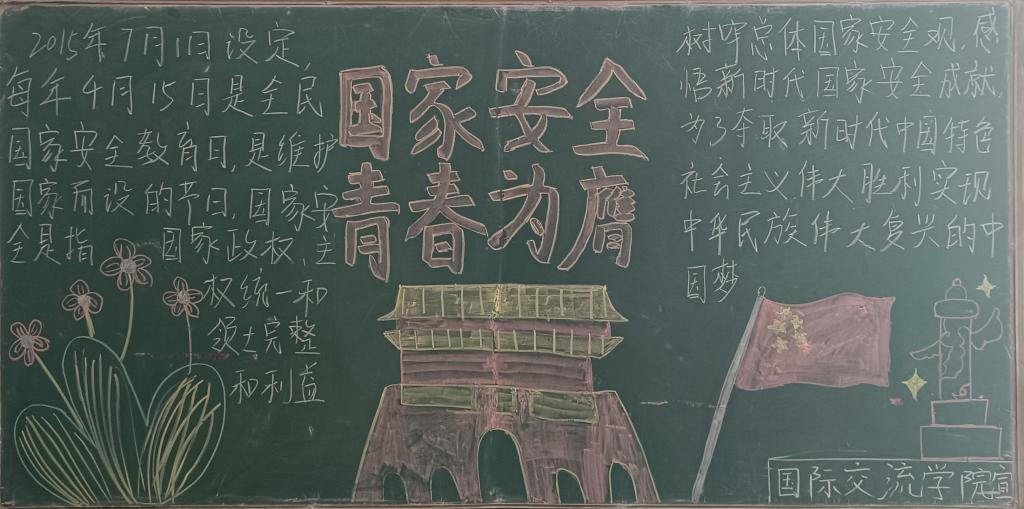 2015年7月1日设定,
每年4月15日是全民
国家安全教育日,是维护
国家而设的节日,国家安
全是指 国家政权、主
权统一和
领土完整
和利益
国家安全
青春为膺
树牢总体国家安全观,感
悟新时代国家安全成就,
为了夺取新时代中国特色
社会主义伟大胜利实现
中华民族伟大复兴的中
国梦
国际交流学院宣